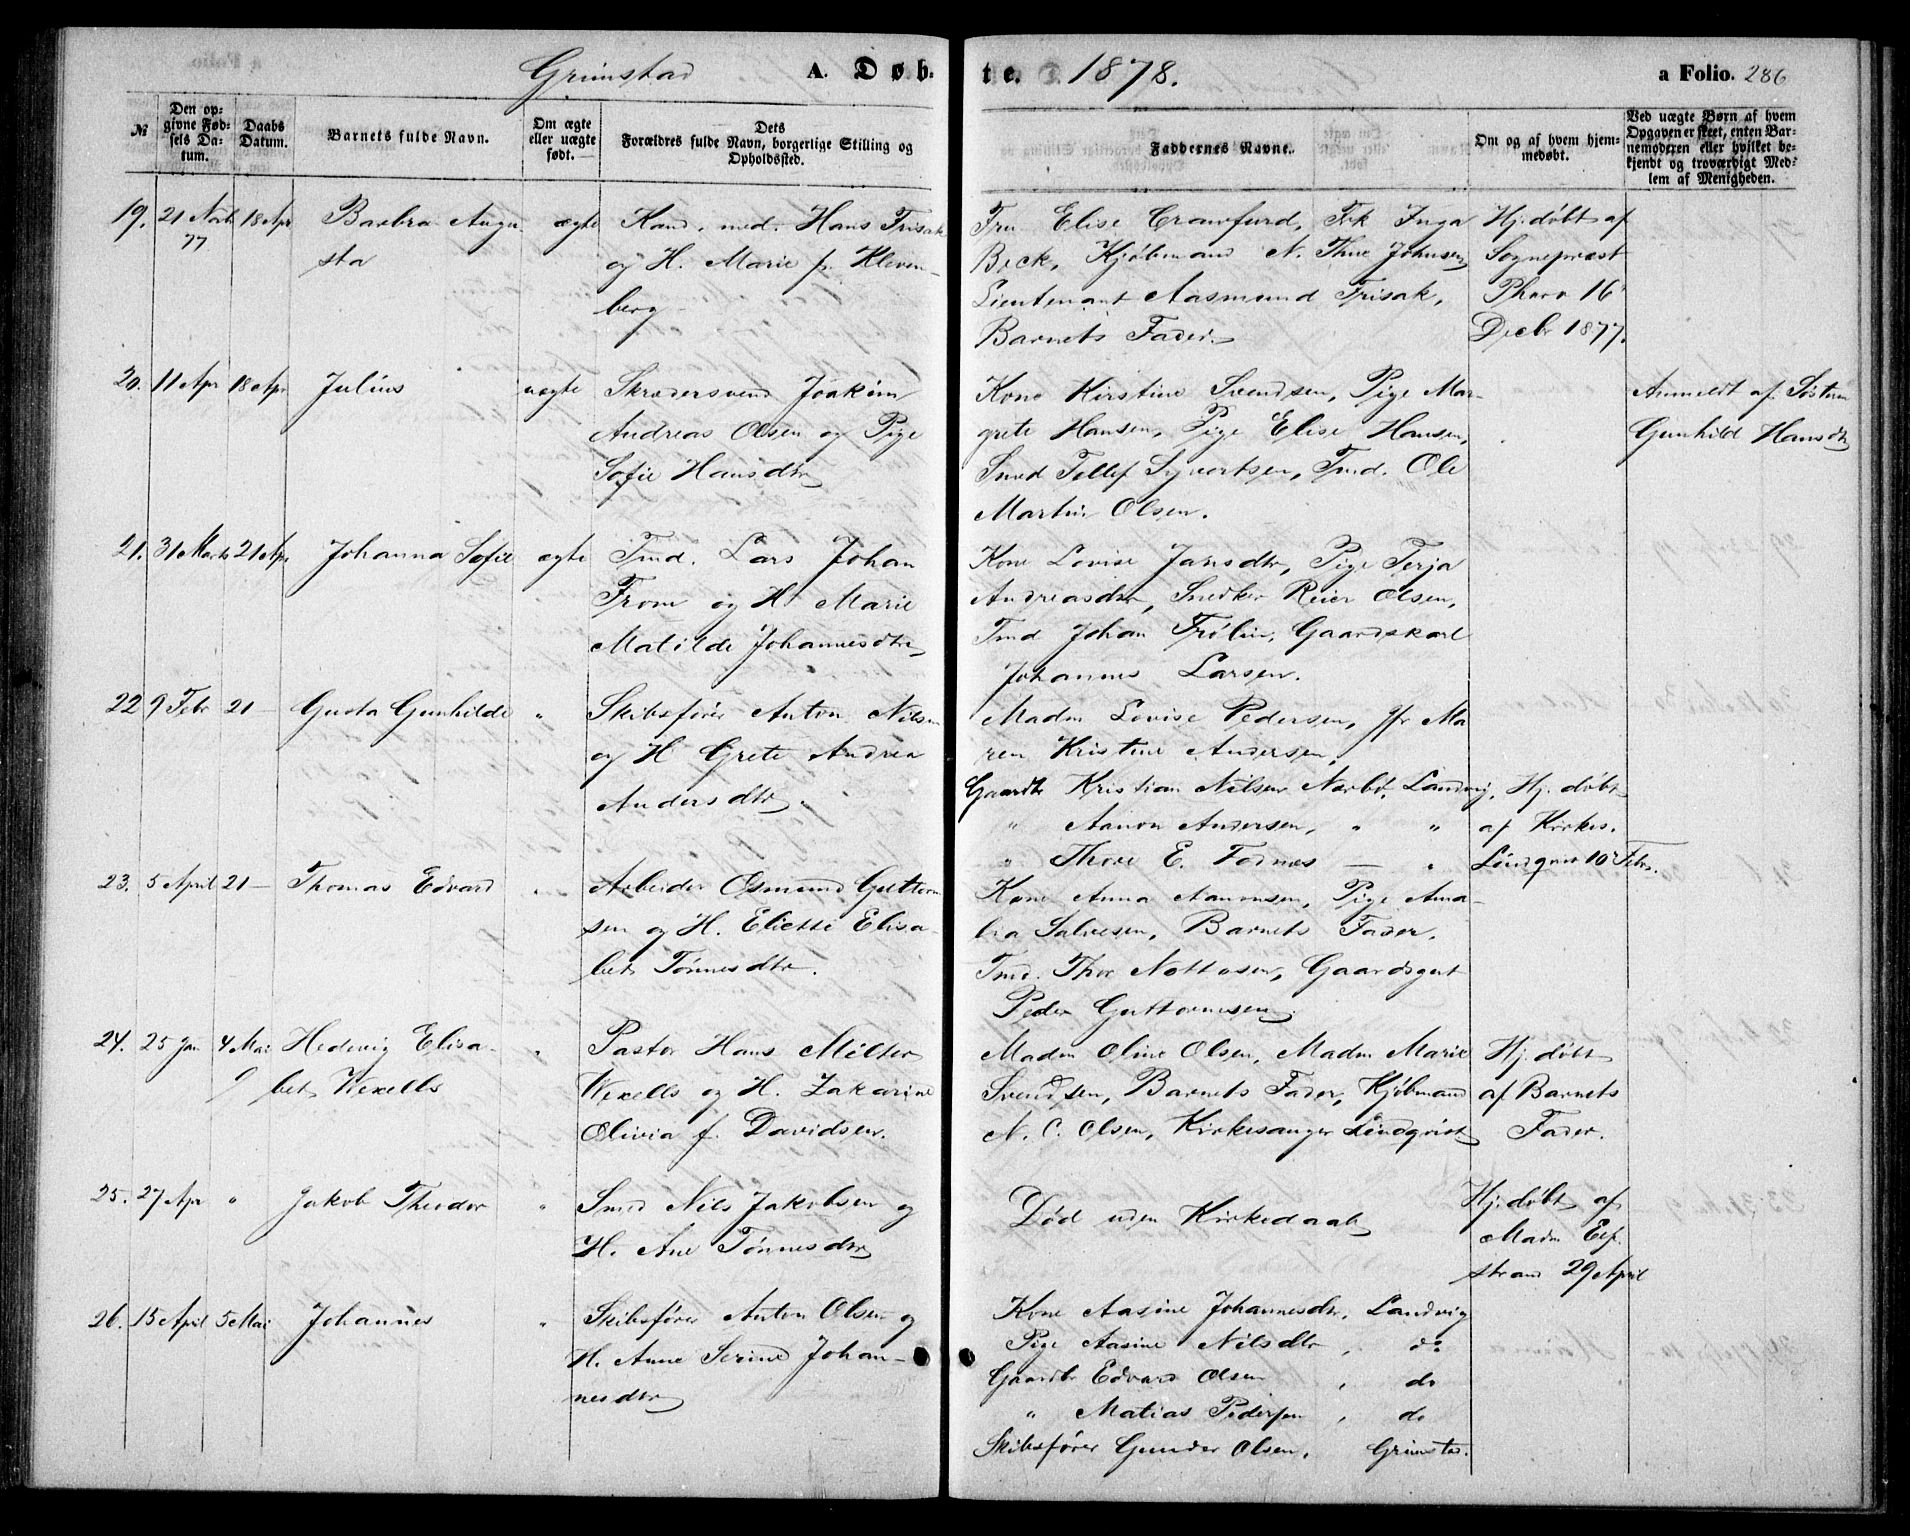 Grimstad A. Døbte. 1878. a Folio. 286
№ Den opgivne Fødsels Datum. Daabs Datum. Barnets fulde Navn. Om ægte eller uægte født. Dets Forældres fulde Navn, borgerlige Stilling og Opholdssted. Faddernes Navne. Om og af hvem hjemmedøbt. Ved uægte Børn af hvem Opgaven er skeet, enten Barnemoderen eller hvilket bekjendt og troværdigt Medlem af Menigheden.
19. 21 Novb 18 Apr Barbra Augu- ægte Kand. med. Hans Frisak Fru Elise Crawfurd, Frk Inga Hj. døbt af
77 sta og H. Marie f. Kleven- Beck, Kjøbmand N. Thue Johnsen Sogneprest
berg Lieutenant Aasmund Frisak, Pharo 16
Barnets Fader Decbr 1877.
20. 11 Apr 18 Apr Julius uægte Skrædersvend Joakim Kone Kirstine Svendsen, Pige Mar- Anmeldt af Søsteren
Andreas Olsen og Pige grete Hansen, Pige Elise Hansen, Gunhild Hansdtr
Sofie Hansdtr Smed Tellef Syvertsen, Tmd. Ole
Martin Olsen.
21. 31 Marts 21 Apr Johanna Sofie ægte Tmd. Lars Johan Kone Lovise Jansdtr, Pige Terja
From og H. Marie Andreasdtr, Snedker Reier Olsen,
Matilde Johannesdtr Tmd Johan Frölin, Gaardskarl
Johannes Larsen.
22 9 Febr 21 — Gusta Gunhilde " Skibsfører Anton Nilsen Madm Lovise Pedersen, Jfr Ma
og H Grete Andrea ren Kristine Andersen,
Andersdtr. Gaardbr Kristian Nilsen Nørbø, Landvig, Hj. døbt
" Aanon Andersen, " " af Kirkes.
" Thore E. Fodnæs — " Lindqvist 10 Febr.
23. 5 April 21 — Thomas Edvard " Arbeider Osmund Guttorm Kone Anna Aanonsen, Pige Ama-
sen og H. Eliette Elisa- lia Salvesen, Barnets Fader.
bet Tönnesdtr. Tmd. Thor Nottosen, Gaardsgut
Peder Guttormsen.
24. 25 Jan 4 Mai Hedevig Elisa- " Pastor Hans Milter Madm Oline Olsen, Madm Marie Hj. døbt
bet Wexells Wexells og H. Zakarine Svendsen, Barnets Fader, Kjøbmand af Barnets
Olivia f. Davidsen. N. C. Olsen, Kirkesanger Lindqvist Fader.
25. 27 Apr " Jakob Theodor " Smed Nils Jakobsen og Død uden Kirkedaab Hj. døbt af
H. Ane Tönnesdtr Madm Eef-
strand 29 April
26. 15 April 5 Mai Johannes " Skibsfører Anton Olsen og Kone Aasine Johannesdtr, Landvig
H. Anne Serine Johan- Pige Aasine Nilsdtr, do
nesdtr Gaardbr Edvard Olsen, do
" Matias Pedersen, do
Skibsfører Gunder Olsen, Grimstad.